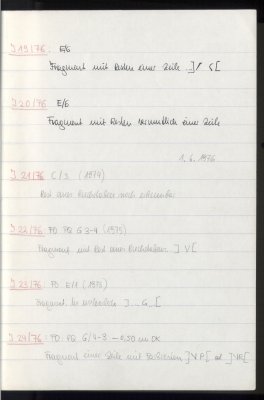 I 19/76: E/6
Fragment mit Resten einer Zeile ]/ S[
I 20/76 E/6
Fragment mit Resten vermutlich einer Zeile
1. 6. 1976
I 21/76 C/3 (1974)
Rest eines Buchstaben noch erkennbar
I 22/76: PD PQ G 3-4 (1975)
Fragment mit Rest eines Buchstaben. ] V[
I 23/76: PD E/1 (1975)
Fragment. ]... G...[
I 24/76: PD PQ G/4-3 - 0,50 m OK
Fragment einer Zeile mit ]VP[ od ]VR[